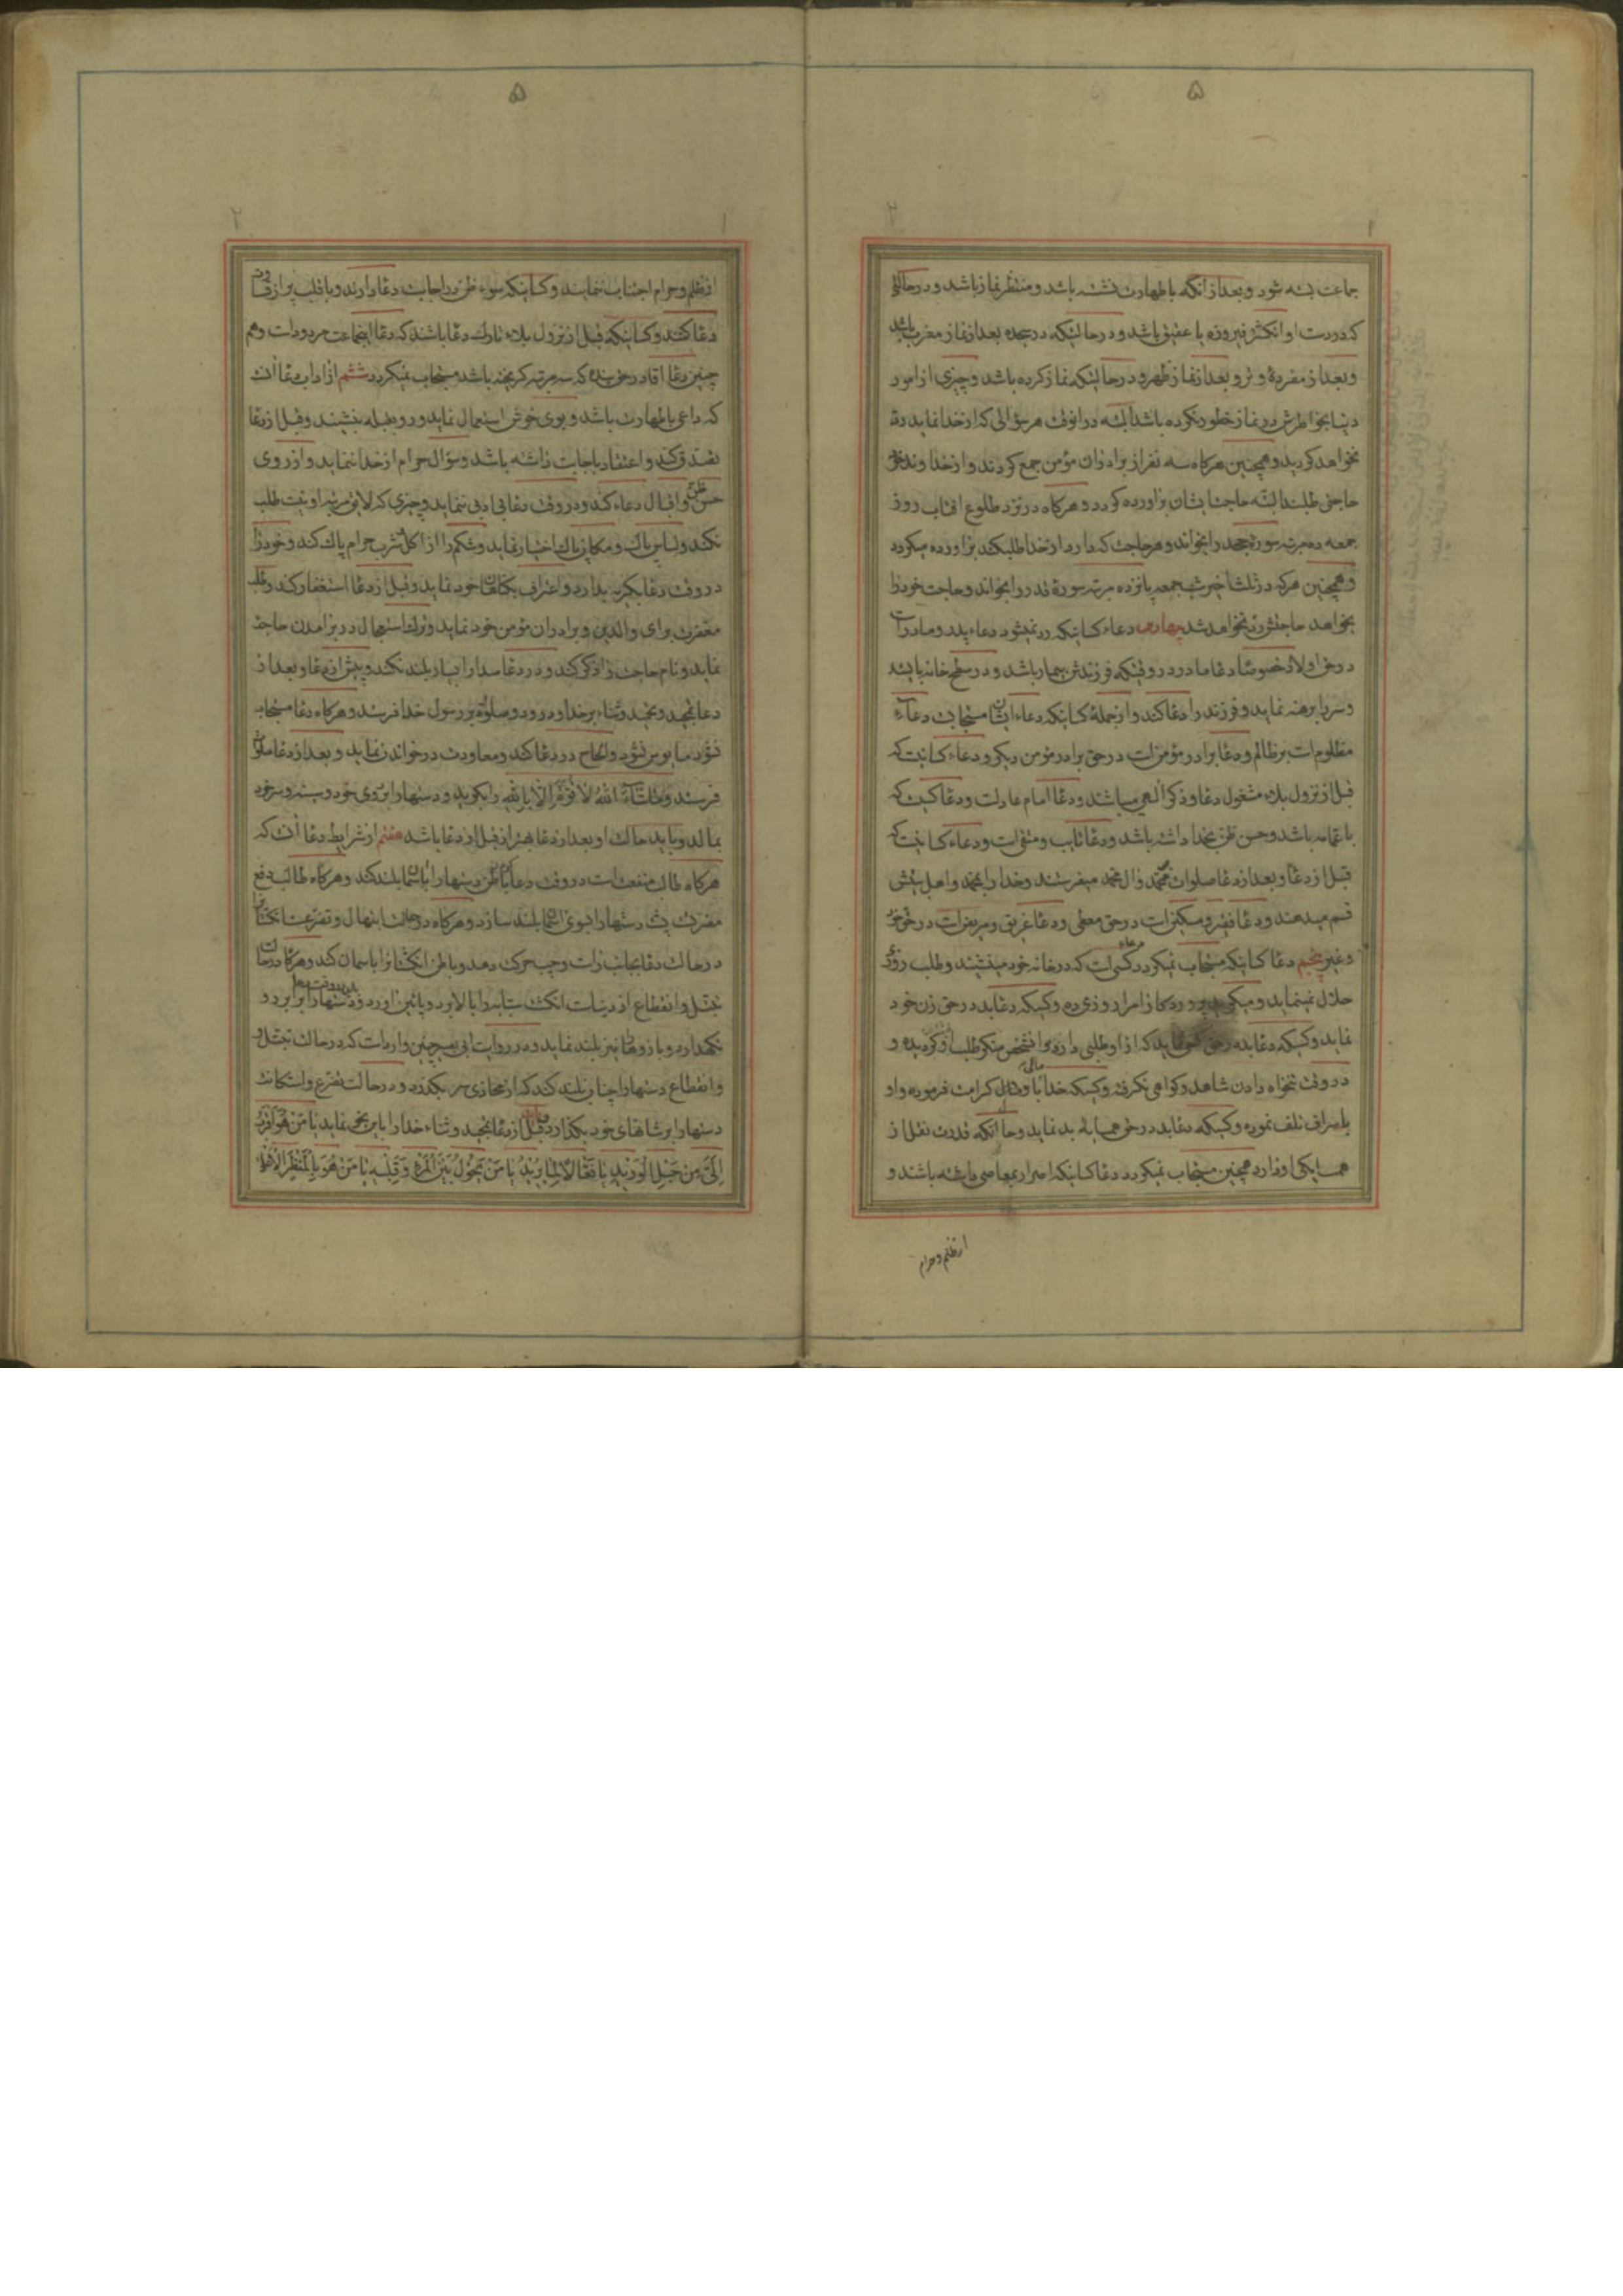 ۵
۲
۱
جماعت بسته شود و بعد از انکه با طهارت نشسته باشد و منتظر نماز باشد و در حالتی
که در دست او انکشتر فیروزه یا عقیق باشد و در حالتیکه در سجده بعد از نماز مغرب باشد
و بعد از مفردهٔ وتر و بعد از نماز ظهر و در حالتیکه نماز کرده باشد و چیزی از امور
دنیا بخواطرش در نماز خطور نکرده باشد البته در انوقت هر سؤالی که از خدا نماید رد
نخواهد کردید و همچنین هرکاه سه نفر از برادران مؤمن جمع کردند و از خداوند
حاجتی طلبند البته حاجت ایشان براورده کردد و هرکاه در نزد طلوع افتاب روز
جمعه ده مرتبه سورهٔ جحد را بخواند و هر حاجت که دارد از خدا طلب کند براورده میکردد
و همچنین هرکه در ثلث اخیر شب جمعه پانزده مرتبه سورهٔ قدر را بخواند و حاجت خود را
بخواهد حاجتش رد نخواهد شد چهارم دعاء کسانیکه رد نمیشود دعاء پدر و مادر است
در حق اولاد خصوصا دعا مادر در وقتیکه فرزندش بیمار باشد و در سطح خانه بایستد
و سر را برهنه نماید و فرزند را دعا کند و از جملهٔ کسانیکه دعاء ایشان مستجاب است دعاء
مظلوم است بر ظالم و دعا برادر مؤمن است در حق برادر مؤمن دیکر و دعاء کسانیست که
قبل از نزول بلاء مشغول دعا و ذکر الهی میباشند و دعا امام عادلست و دعا کسیست که
با عمامه باشد و حسن ظن بخدا داشته باشد و دعا تایب و متقی است و دعاء کسانیست که
قبل از دعا و بعد از دعا صلوات بمحمد و ال محمد میفرستند و خدا را بمحمد و اهل بیتش
قسم میدهند و دعا فقیر و مسکین است در حق معطی و دعا غریق و مریض است در حق خود
و غیر پنجم دعا کسانیکه مستجاب نمیکردد دعاء کسی است که در خانه خود مینشیند و طلب روزی
حلال نمینماید و میکوید پروردکارا مرا روزی ده و کسیکه دعا بد در حق زن خود
نماید و کسیکه دعا بد در حق کسی نماید که از او طلبی دارد و انشخص منکر طلب او کردیده و
در وقت تنخواه دادن شاهد و کواهی نکرفته و کسیکه خدا باو مال کرامت فرموده و او
باسراف تلف نموده و کسیکه دعا بد در حق همسایه بد نماید و حال انکه قدرت نقل از
همسایکی او دارد همچنین مستجاب نمیکردد دعا کسانیکه اصرار بمعاصی داشته باشند و
از ظلم و حرام
۵
۲
۱
از ظلم و حرام اجتناب ننمایند و کسانیکه سوء ظن در اجابت دعا دارند و با قلب پر از قساوت
دعا کنند و کسانیکه قبل از نزول بلاء تارک دعا باشند که دعا اینجماعت مردود است و هم
چنین دعا اقا در حق بنده که سه مرتبه کریخته باشد مستجاب نمیکردد ششم از اداب دعا انست
که داعی با طهارت باشد و بوی خوش استعمال نماید و رو بقبله بنشیند و قبل از دعا
تصدق کند و اعتقاد باجابت داشته باشد و سؤال حرام از خدا ننماید و از روی
حسن ظن و اقبال دعاء کند و در وقت دعا بی ادبی ننماید و چیزی که لایق مرتبه او نیست طلب
نکند و لباس پاک و مکان پاک اختیار نماید و شکم را از اکل و شرب حرام پاک کند و خود را
در وقت دعا بکریه بدارد و اعتراف بکناهان خود نماید و قبل از دعا استغفار کند و طلب
مغفرت برای والدین و برادران مؤمن خود نماید و ترک استعجال در برامدن حاجت
نماید و نام حاجت را ذکر کند و در دعا صدا را بسیار بلند نکند و پیش از دعا و بعد از
دعا تمجید و تحمید و ثناء بر خدا و درود و صلوة بر رسول خدا فرستد و هرکاه دعا مستجاب
نشود مایوس نشود و الحاح در دعا کند و معاودت در خواندن نماید و بعد از دعا صلوات
فرستد و ما شاء الله لا قوة الا بالله را بکوید و دستها را بروی خود و سینه و سر خود
بمالد و باید حالت او بعد از دعا بهتر از قبل از دعا باشد هفتم از شرایط دعا آن که
هرکاه طالب منفعت است در وقت دعا باطن دستها را باسمان بلند کند و هرکاه طالب دفع
مضرت است پشت دستها را بسوی اسمان بلند سازد و هرکاه در حالت ابتهال و تضرعست انکشتان را
در حالت دعا بجانب راست و چپ حرکت دهد و باطن انکشتان را باسمان کند و هرکاه در حالت
تبتل و انقطاع از دنیاست انکشت سبابه را بالا برد و پائین اورد و دستها را برابر رو
نکهدارد و بازوها نیز بلند نماید و در روایت ابی بصیر چنین وارد است که در حالت تبتل
و انقطاع دستها را چنان بلند کند که از محاذی سر بکذرد و در حالت تضرع و استکانت
دستها را بر شانهای خود بکذارد و قبل از دعا تمجید و ثناء خدا را باین نحو نماید یا من هو اقرب
الی من حبل الورید یا فعالا لما یرید یا من یحول بین المرء و قلبه یا من هو بالمنظر الاعلی